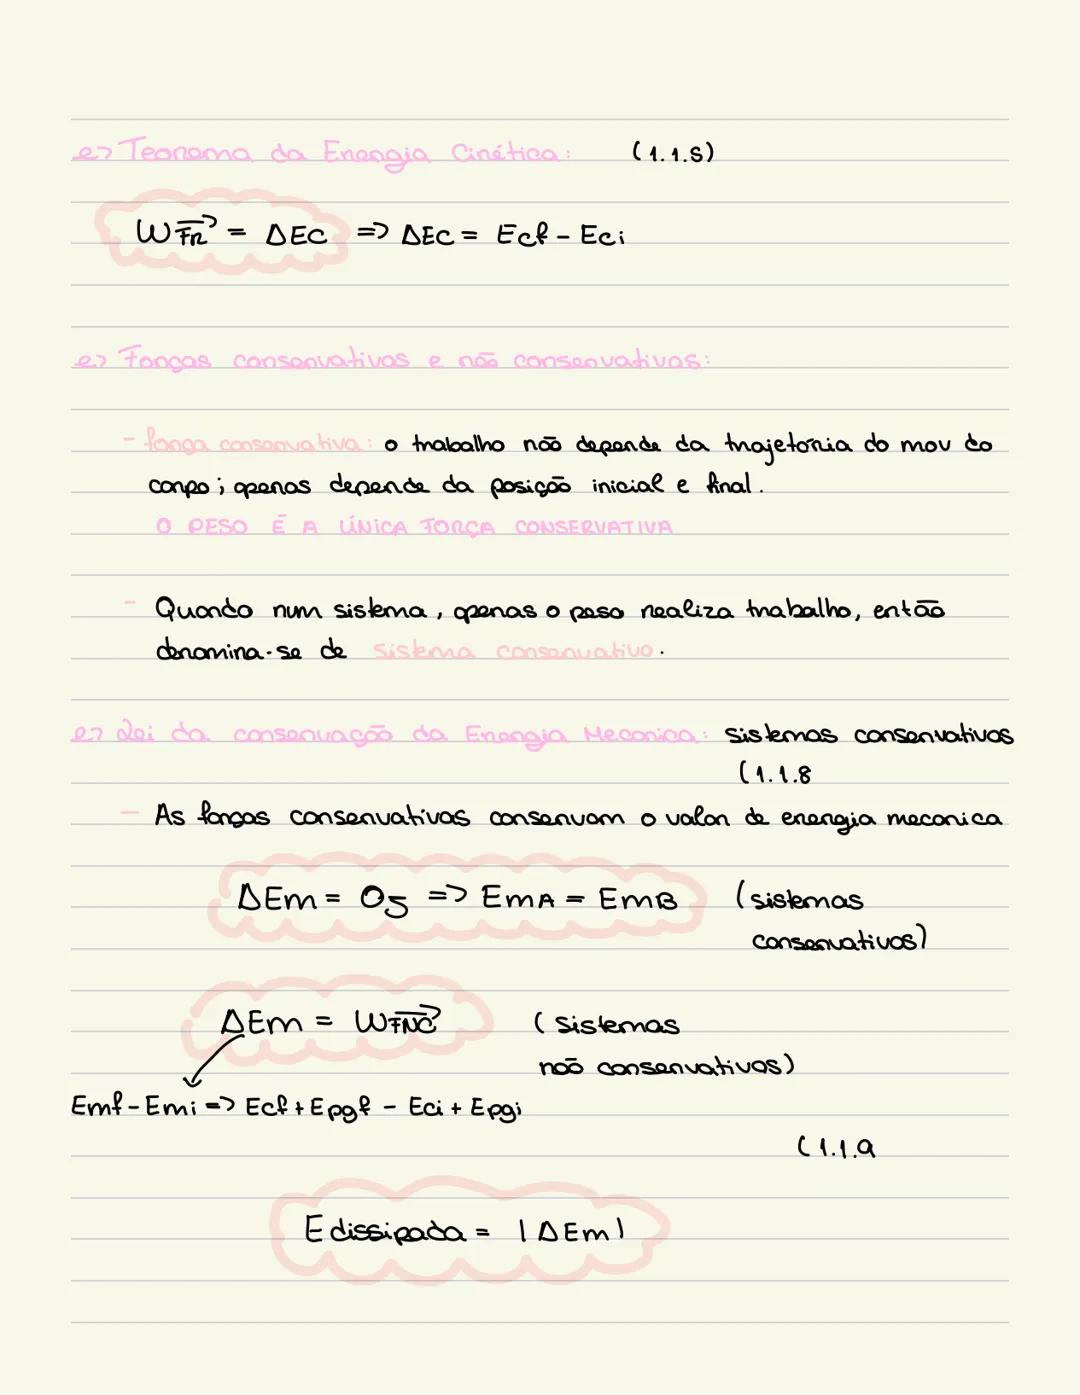 e> Teorema da Energia Cinética: (1.1.5)
W F⃗R = ΔEC => ΔEC = Ecf - Eci
e> Forças conservativas e não conservativas:
- força conservativa: o trabalho não depende da trajetória do mov do
corpo; apenas depende da posição inicial e final.
O PESO É A ÚNICA FORÇA CONSERVATIVA
- Quando num sistema, apenas o peso realiza trabalho, então
denomina-se de sistema conservativo.
e> Lei da conservação da Energia Mecanica: sistemas conservativos
(1.1.8
- As forças conservativas conservam o valor de energia mecanica
ΔEm = 0J => EmA = EmB (sistemas
conservativos)
ΔEm = W F⃗NC (sistemas
não conservativos)
Emf - Emi => Ecf + Epgf - Eci + Epgi
(1.1.9
E dissipada = |ΔEm|